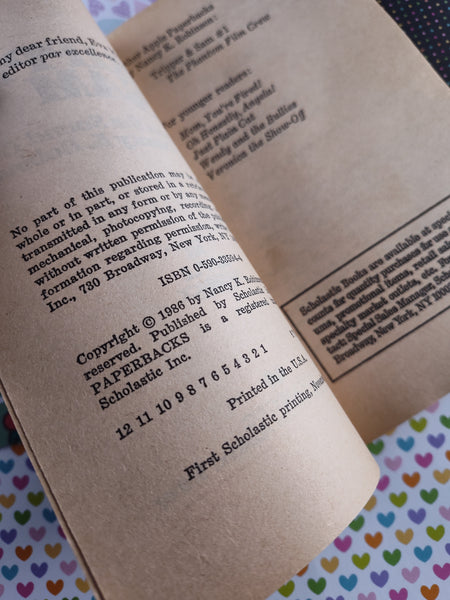 ny dear friend, Eva
editor par excellence
No part of this publication may
whole or in part, or stored in a re
transmitted in any form or by any m
mechanical, photocopying, recordin
without written permission of the pu
formation regarding permission, wri
Inc., 730 Broadway, New York, NY
ISBN 0-590-
Copyright © 1986 by Nancy K. Robin
reserved. Published by Scholastic
PAPERBACKS is a registered
Scholastic Inc.
12 11 10 9 8 7 6 5 4 3 2 1
Printed in the U.S.A.
First Scholastic printing, Nove
her Apple Paperbacks
by Nancy K. Robinson:
Tripper & Sam #1
The Phantom Film Crew
for younger readers:
Mom, You're Fired!
Oh Honestly, Angela!
Just Plain Cat
Wendy and the Bullies
Veronica the Show-Off
Scholastic Books are available at speci
counts for quantity purchases for use
ums, promotional items, retail sale
specialty market outlets, etc. For
tact: Special Sales Manager, Schola
Broadway, New York, NY 1000